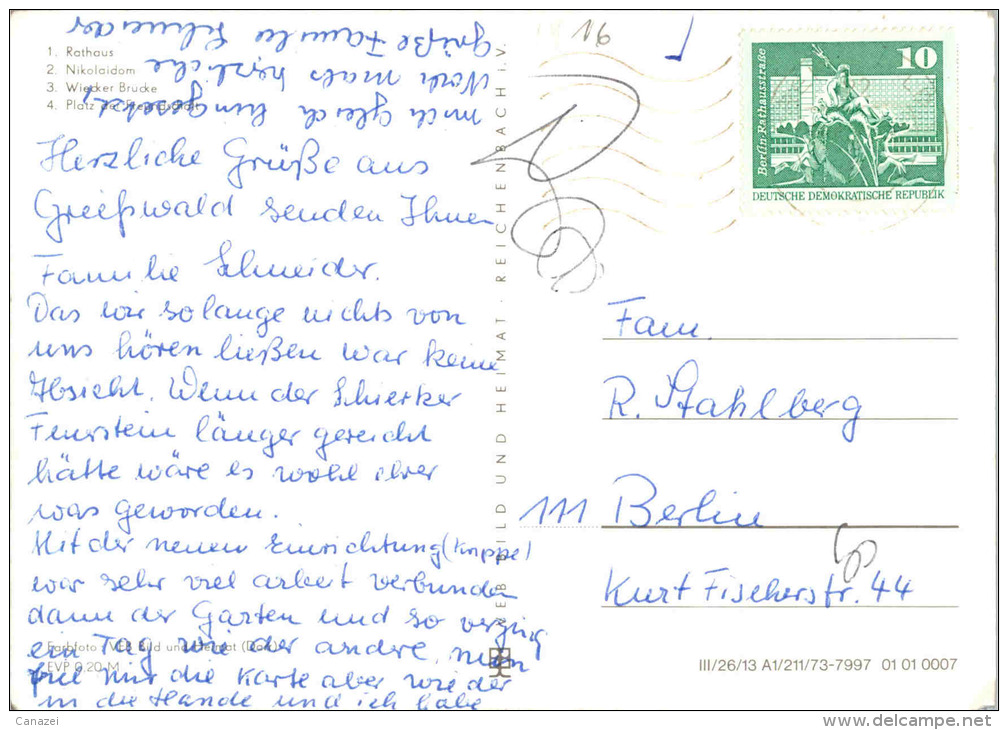 1. Rathaus
2. Nikolaidom
3. Wiecker Brücke
4. Platz der Freundschaft
Herzliche Grüße aus
Greifswald senden Ihnen
Familie Schneider.
Das wir so lange nichts von
uns hören ließen war keine
Absicht. Wenn der Schierker
Feuerstein länger gereicht
hätte wäre es wohl eher
was geworden.
Mit der neuen Einrichtung (Krippe)
war sehr viel arbeit verbunden
dann der Garten und so verging
ein Tag wie der andre, nun
fiel mir die Karte aber wieder
in die Hände und ich habe
mich gleich hingesetzt,
Noch mals herzliche
Grüße Familie Schneider
Farbfoto: VEB Bild und Heimat (Dorr)
EVP 0,20 M
VEB BILD UND HEIMAT · REICHENBACH I. V.
16
10
Berlin-Rathausstraße
DEUTSCHE DEMOKRATISCHE REPUBLIK
Fam.
R. Stahlberg
111 Berlin
Kurt Fischerstr. 44
III/26/13 A1/211/73-7997 01 01 0007
Canazei
http://www.delcampe.net